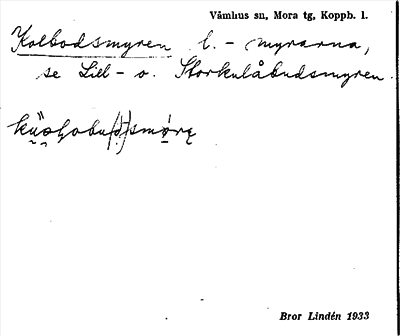 Våmhus sn, Mora tg, Koppb. l.
Kolbodsmyren l. - myrarna,
se Lill- o. Storkulåbudsmyren.
Bror Lindén 1933